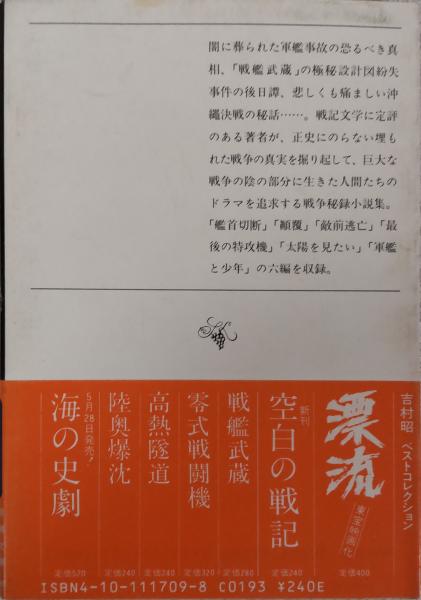 闇に葬られた軍艦事故の恐るべき真
相、「戦艦武蔵」の極秘設計図紛失
事件の後日譚、悲しくも痛ましい沖
縄決戦の秘話……。戦記文学に定評
のある著者が、正史にのらない埋も
れた戦争の真実を掘り起して、巨大な
戦争の陰の部分に生きた人間たちの
ドラマを追求する戦争秘録小説集。
「艦首切断」「顚覆」「敵前逃亡」「最
後の特攻機」「太陽を見たい」「軍艦
と少年」の六編を収録。
吉村昭 ベストコレクション
漂流
東宝映画化
定価400
新刊
空白の戦記
定価240
戦艦武蔵
定価280
零式戦闘機
定価320
高熱隧道
定価240
陸奥爆沈
定価240
5月28日発売!
海の史劇
定価520
ISBN4-10-111709-8 C0193 ¥240E